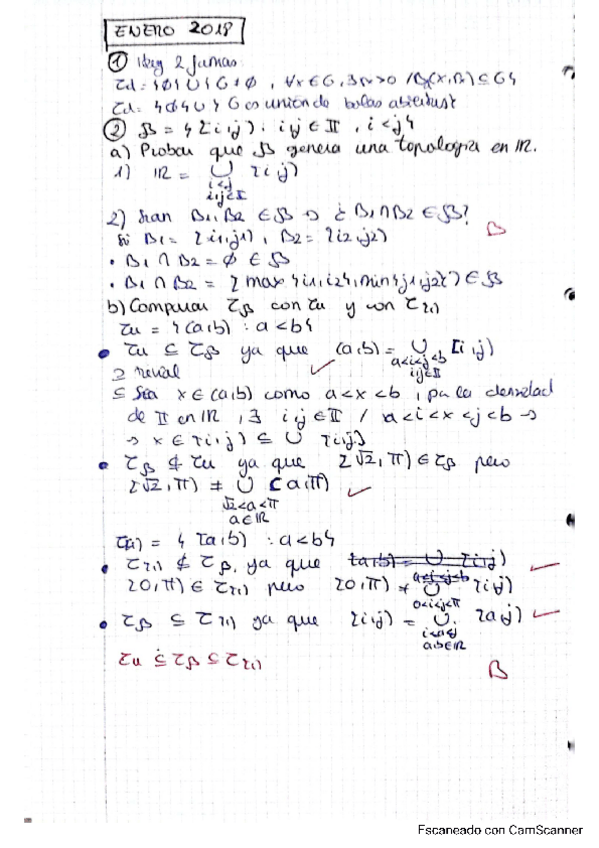 ENERO 2018
① Hay 2 formas:
τd = {∅} ∪ {G ≠ ∅, ∀x ∈ G, ∃r>0 / Bd(x,r) ⊆ G}
τd = {∅} ∪ {G es unión de bolas abiertas}
② β = {[i,j) : i,j ∈ II, i<j}
a) Probar que β genera una topología en IR.
1) IR = ∪ [i,j)
i<j
i,j∈II
2) Sean B1, B2 ∈ β → ¿B1∩B2 ∈ β?
Si B1 = [i1,j1), B2 = [i2,j2)
B
• B1 ∩ B2 = ∅ ∈ β
• B1 ∩ B2 = [max{i1,i2}, min{j1,j2}) ∈ β
b) Comparar τβ con τu y con τ[,)
τu = {(a,b) : a<b}
• τu ⊆ τβ ya que (a,b) = ∪ [i,j)
a<i<j<b
i,j∈II
⊇ trivial ✓
⊆ Sea x ∈ (a,b) como a<x<b, por la densidad
de II en IR, ∃ i,j ∈ II / a<i<x<j<b →
→ x ∈ [i,j) ⊆ ∪ [i,j)
• τβ ⊄ τu ya que [√2,π) ∈ τβ pero
[√2,π) ≠ ∪ (a,π) ✓
√2<a<π
a∈IR
τ[,) = {[a,b) : a<b}
• τ[,) ⊄ τβ, ya que [a,b) = ∪ [i,j)
a<i<j<b
[0,π) ∈ τ[,) pero [0,π) ≠ ∪ [i,j) ✓
0<i<j<π
• τβ ⊆ τ[,) ya que [i,j) = ∪ [a,j) ✓
i<a<j
a,b∈IR
τu ⊆ τβ ⊆ τ[,)
B
Escaneado con CamScanner